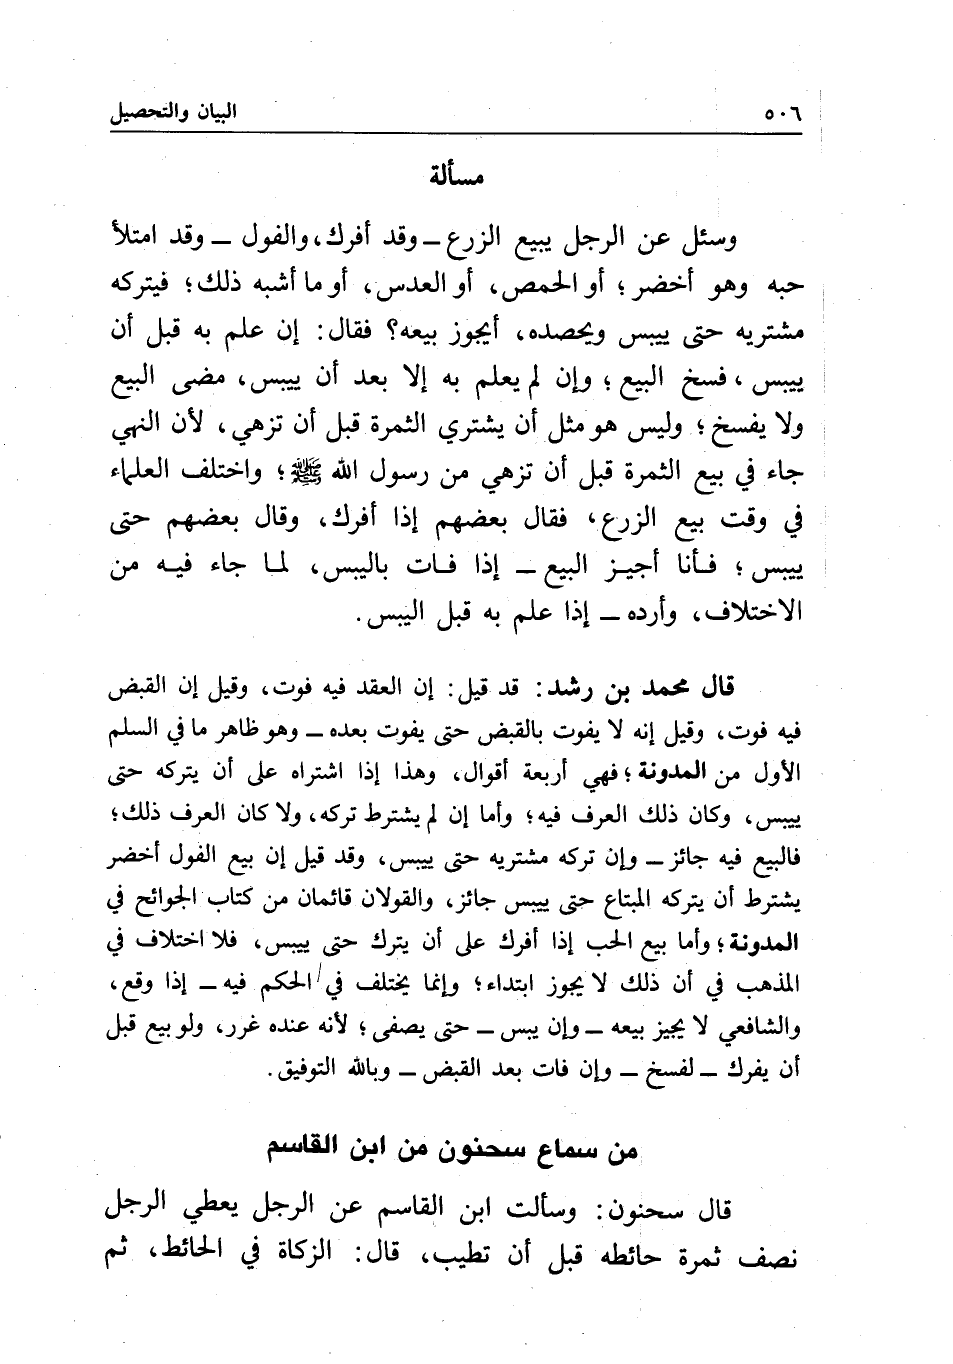 ٥٠٦ البيان والتحصيل
مسألة
وسئل عن الرجل يبيع الزرع ــ وقد أفرك، والفول ــ وقد امتلأ
حبه وهو أخضر؛ أو الحمص، أو العدس، أو ما أشبه ذلك؛ فيتركه
مشتريه حتى ييبس ويحصده، أيجوز بيعه؟ فقال: إن علم به قبل أن
ييبس، فسخ البيع؛ وإن لم يعلم به إلا بعد أن ييبس، مضى البيع
ولا يفسخ؛ وليس هو مثل أن يشتري الثمرة قبل أن تزهي، لأن النهي
جاء في بيع الثمرة قبل أن تزهي من رسول الله ﷺ؛ واختلف العلماء
في وقت بيع الزرع، فقال بعضهم إذا أفرك، وقال بعضهم حتى
ييبس؛ فأنا أجيز البيع ــ إذا فات باليبس، لما جاء فيه من
الاختلاف، وأرده ــ إذا علم به قبل اليبس.
قال محمد بن رشد: قد قيل: إن العقد فيه فوت، وقيل إن القبض
فيه فوت، وقيل إنه لا يفوت بالقبض حتى يفوت بعده ــ وهو ظاهر ما في السلم
الأول من المدونة؛ فهي أربعة أقوال، وهذا إذا اشتراه على أن يتركه حتى
ييبس، وكان ذلك العرف فيه؛ وأما إن لم يشترط تركه، ولا كان العرف ذلك؛
فالبيع فيه جائز ــ وإن تركه مشتريه حتى ييبس، وقد قيل إن بيع الفول أخضر
يشترط أن يتركه المبتاع حتى ييبس جائز، والقولان قائمان من كتاب الجوائح في
المدونة؛ وأما بيع الحب إذا أفرك على أن يترك حتى ييبس، فلا اختلاف في
المذهب في أن ذلك لا يجوز ابتداء؛ وإنما يختلف في الحكم فيه ــ إذا وقع،
والشافعي لا يجيز بيعه ــ وإن يبس ــ حتى يصفى؛ لأنه عنده غرر، ولو بيع قبل
أن يفرك ــ لفسخ ــ وإن فات بعد القبض ــ وبالله التوفيق.
من سماع سحنون من ابن القاسم
قال سحنون: وسألت ابن القاسم عن الرجل يعطي الرجل
نصف ثمرة حائطه قبل أن تطيب، قال: الزكاة في الحائط، ثم